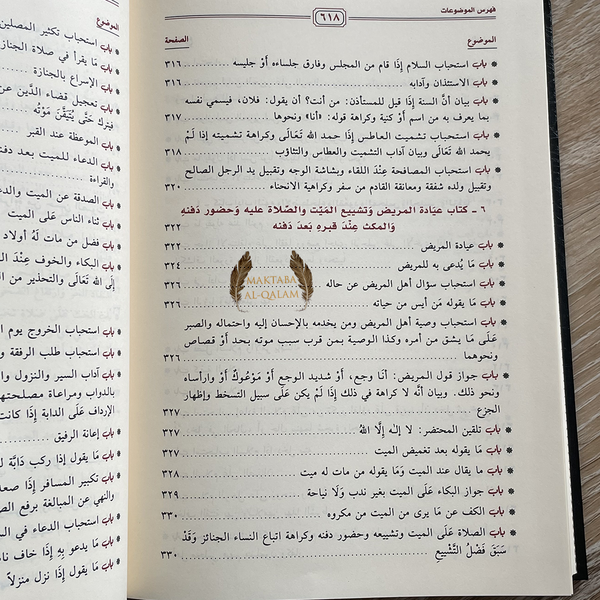 فهرس الموضوعات
٦١٨
الموضوع
الصفحة
* باب استحباب السلام إذا قام من المجلس وفارق جلساءه أو جليسه ........ ٣١٦
* باب الاستئذان وآدابه ........ ٣١٦
* باب بيان أنَّ السنة إذا قيل للمستأذن: من أنت؟ أن يقول: فلان، فيسمي نفسه
بما يعرف به من اسم أو كنية وكراهة قوله: «أنا» ونحوها ........ ٣١٧
* باب استحباب تشميت العاطس إذا حمد الله تَعَالَى وكراهة تشميته إذا لَمْ
يحمد الله تَعَالَى وبيان آداب التشميت والعطاس والتثاؤب ........ ٣١٨
* باب استحباب المصافحة عِنْدَ اللقاء وبشاشة الوجه وتقبيل يد الرجل الصالح
وتقبيل ولده شفقة ومعانقة القادم من سفر وكراهية الانحناء ........ ٣٢٠
٦ ـ كتاب عيَادة المريض وَتشييع المَيّت والصَّلاة عليه وَحضور دَفنهِ
وَالمكث عِنْدَ قبرهِ بَعدَ دَفنه ........ ٣٢٢
* باب عيادة المريض ........ ٣٢٢
* باب مَا يُدعى به للمريض ........ ٣٢٤
* باب استحباب سؤال أهل المريض عن حاله ........ ٣٢٦
* باب مَا يقوله مَن أيس من حياته ........ ٣٢٦
* باب استحباب وصية أهل المريض ومن يخدمه بالإحسان إليه واحتماله والصبر
عَلَى مَا يشق من أمره وكذا الوصية بمن قرب سبب موته بحد أَوْ قصاص
ونحوهما ........ ٣٢٦
* باب جواز قول المريض: أنَا وجع، أَوْ شديد الوجع أَوْ مَوْعُوكٌ أَوْ وارأساه
ونحو ذلك. وبيان أنَّه لا كراهة في ذلك إِذَا لَمْ يكن عَلَى سبيل التسخط وإظهار
الجزع ........ ٣٢٧
* باب تلقين المحتضر: لا إله إِلَّا اللهُ ........ ٣٢٧
* باب مَا يقوله بعد تغميض الميت ........ ٣٢٧
* باب ما يقال عند الميت وَمَا يقوله من مات له ميت ........ ٣٢٨
* باب جواز البكاء عَلَى الميت بغير ندب وَلَا نياحة ........ ٣٢٩
* باب الكف عن مَا يرى من الميت من مكروه ........ ٣٣٠
* باب الصلاة عَلَى الميت وتشييعه وحضور دفنه وكراهة اتباع النساء الجنائز وَقَدْ
سَبَقَ فَضْلُ التَّشْيِيعِ ........ ٣٣٠
MAKTABA
AL-QALAM
الموضوع
* باب استحباب تكثير المصلين
* باب مَا يقرأ في صلاة الجنازة
* باب الإسراع بالجنازة
* باب تعجيل قضاء الدَّين عن
فيترك حَتَّى يُتَيَقَّنَ مَوْتُه
* باب الموعظة عند القبر
* باب الدعاء للميت بعد دفنه
والقراءة
* باب الصدقة عن الميت والدعاء
* باب ثناء الناس عَلَى الميت
* باب فضل من مات لَهُ أولاد
* باب البكاء والخوف عِنْدَ
إلَى الله تَعَالَى والتحذير من
* باب استحباب الخروج يوم
* باب استحباب طلب الرفقة
* باب آداب السير والنزول
بالدواب ومراعاة مصلحتها
الإرداف عَلَى الدابة إِذَا كانت
* باب إعانة الرفيق
* باب مَا يقول إِذَا ركب دَابَّة
* باب تكبير المسافر إِذَا صعد
والنهي عن المبالغة برفع
* باب استحباب الدعاء في
* باب مَا يدعو بِهِ إِذَا خاف
* باب مَا يقول إِذَا نزل منزلاً